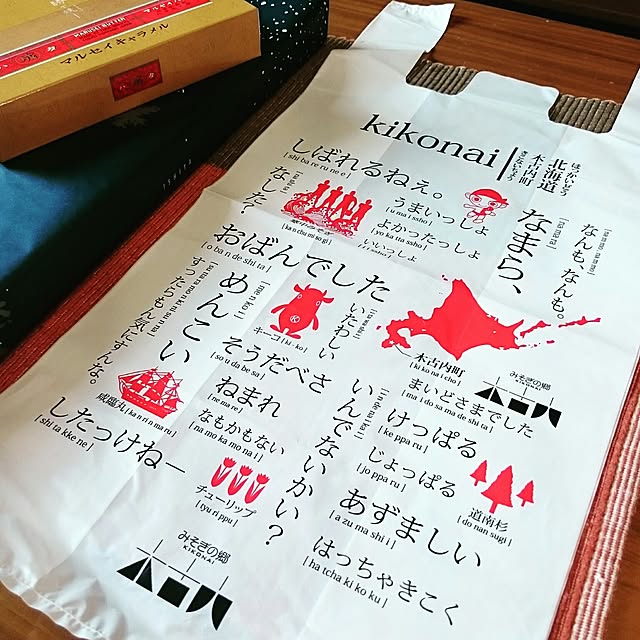 マルセイキャラメル
MARUSEI BUTTER
六花
kikonai
ほっかいどう
北海道
きこないちょう
木古内町
しばれるねぇ。
[ shi ba re ru ne e ]
なした?
[ na shi ta ]
寒中みそぎ
[ kan chu mi so gi ]
うまいっしょ
[ u ma i ssho ]
よかったっしょ
[ yo ka ta ssho ]
いいっしょ
なまら、
[ na ma ra ]
なんも、なんも。
おばんでした
[ o ba n de shi ta ]
めんこい
[ me n ko i ]
すったらもん気にすんな。
キーコ [ ki - ko ]
いたわしい
咸臨丸 [ ka n ri n ma ru ]
そうだべさ
[ so u da be sa ]
ねまれ
[ ne ma re ]
なもかもない
[ na mo ka mo na i ]
いんでないかい?
[ i n de na i ka i ]
木古内町
[ ki ko nai cho ]
みそぎの郷
KIKONAI
木古内
まいどさまでした
[ ma i do sa ma de shi ta ]
けっぱる
[ ke ppa ru ]
じょっぱる
[ jo ppa ru ]
道南杉
[ do nan sugi ]
あずましい
[ a zu ma shi i ]
はっちゃきこく
[ ha tcha ki ko ku ]
したっけねー
[ shi ta kke ne ]
チューリップ
[ tyu ri ppu ]
みそぎの郷
KIKONAI
木古内